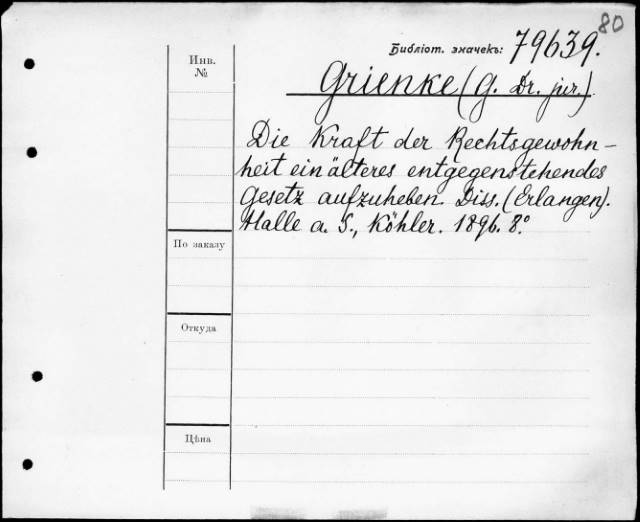 80
Библіот. значекъ: 79639.
Инв.
№
Grienke (G. Dr. jur.)
Die Kraft der Rechtsgewohn-
heit ein älteres entgegenstehendes
Gesetz aufzuheben. Diss. (Erlangen).
Halle a. S., Köhler. 1896. 8°.
По заказу
Откуда
Цѣна